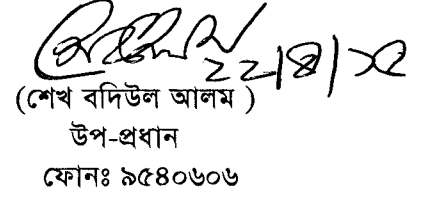 ২২/৪/১৫
(শেখ বদিউল আলম )
উপ-প্রধান
ফোনঃ ৯৫৪০৬০৬